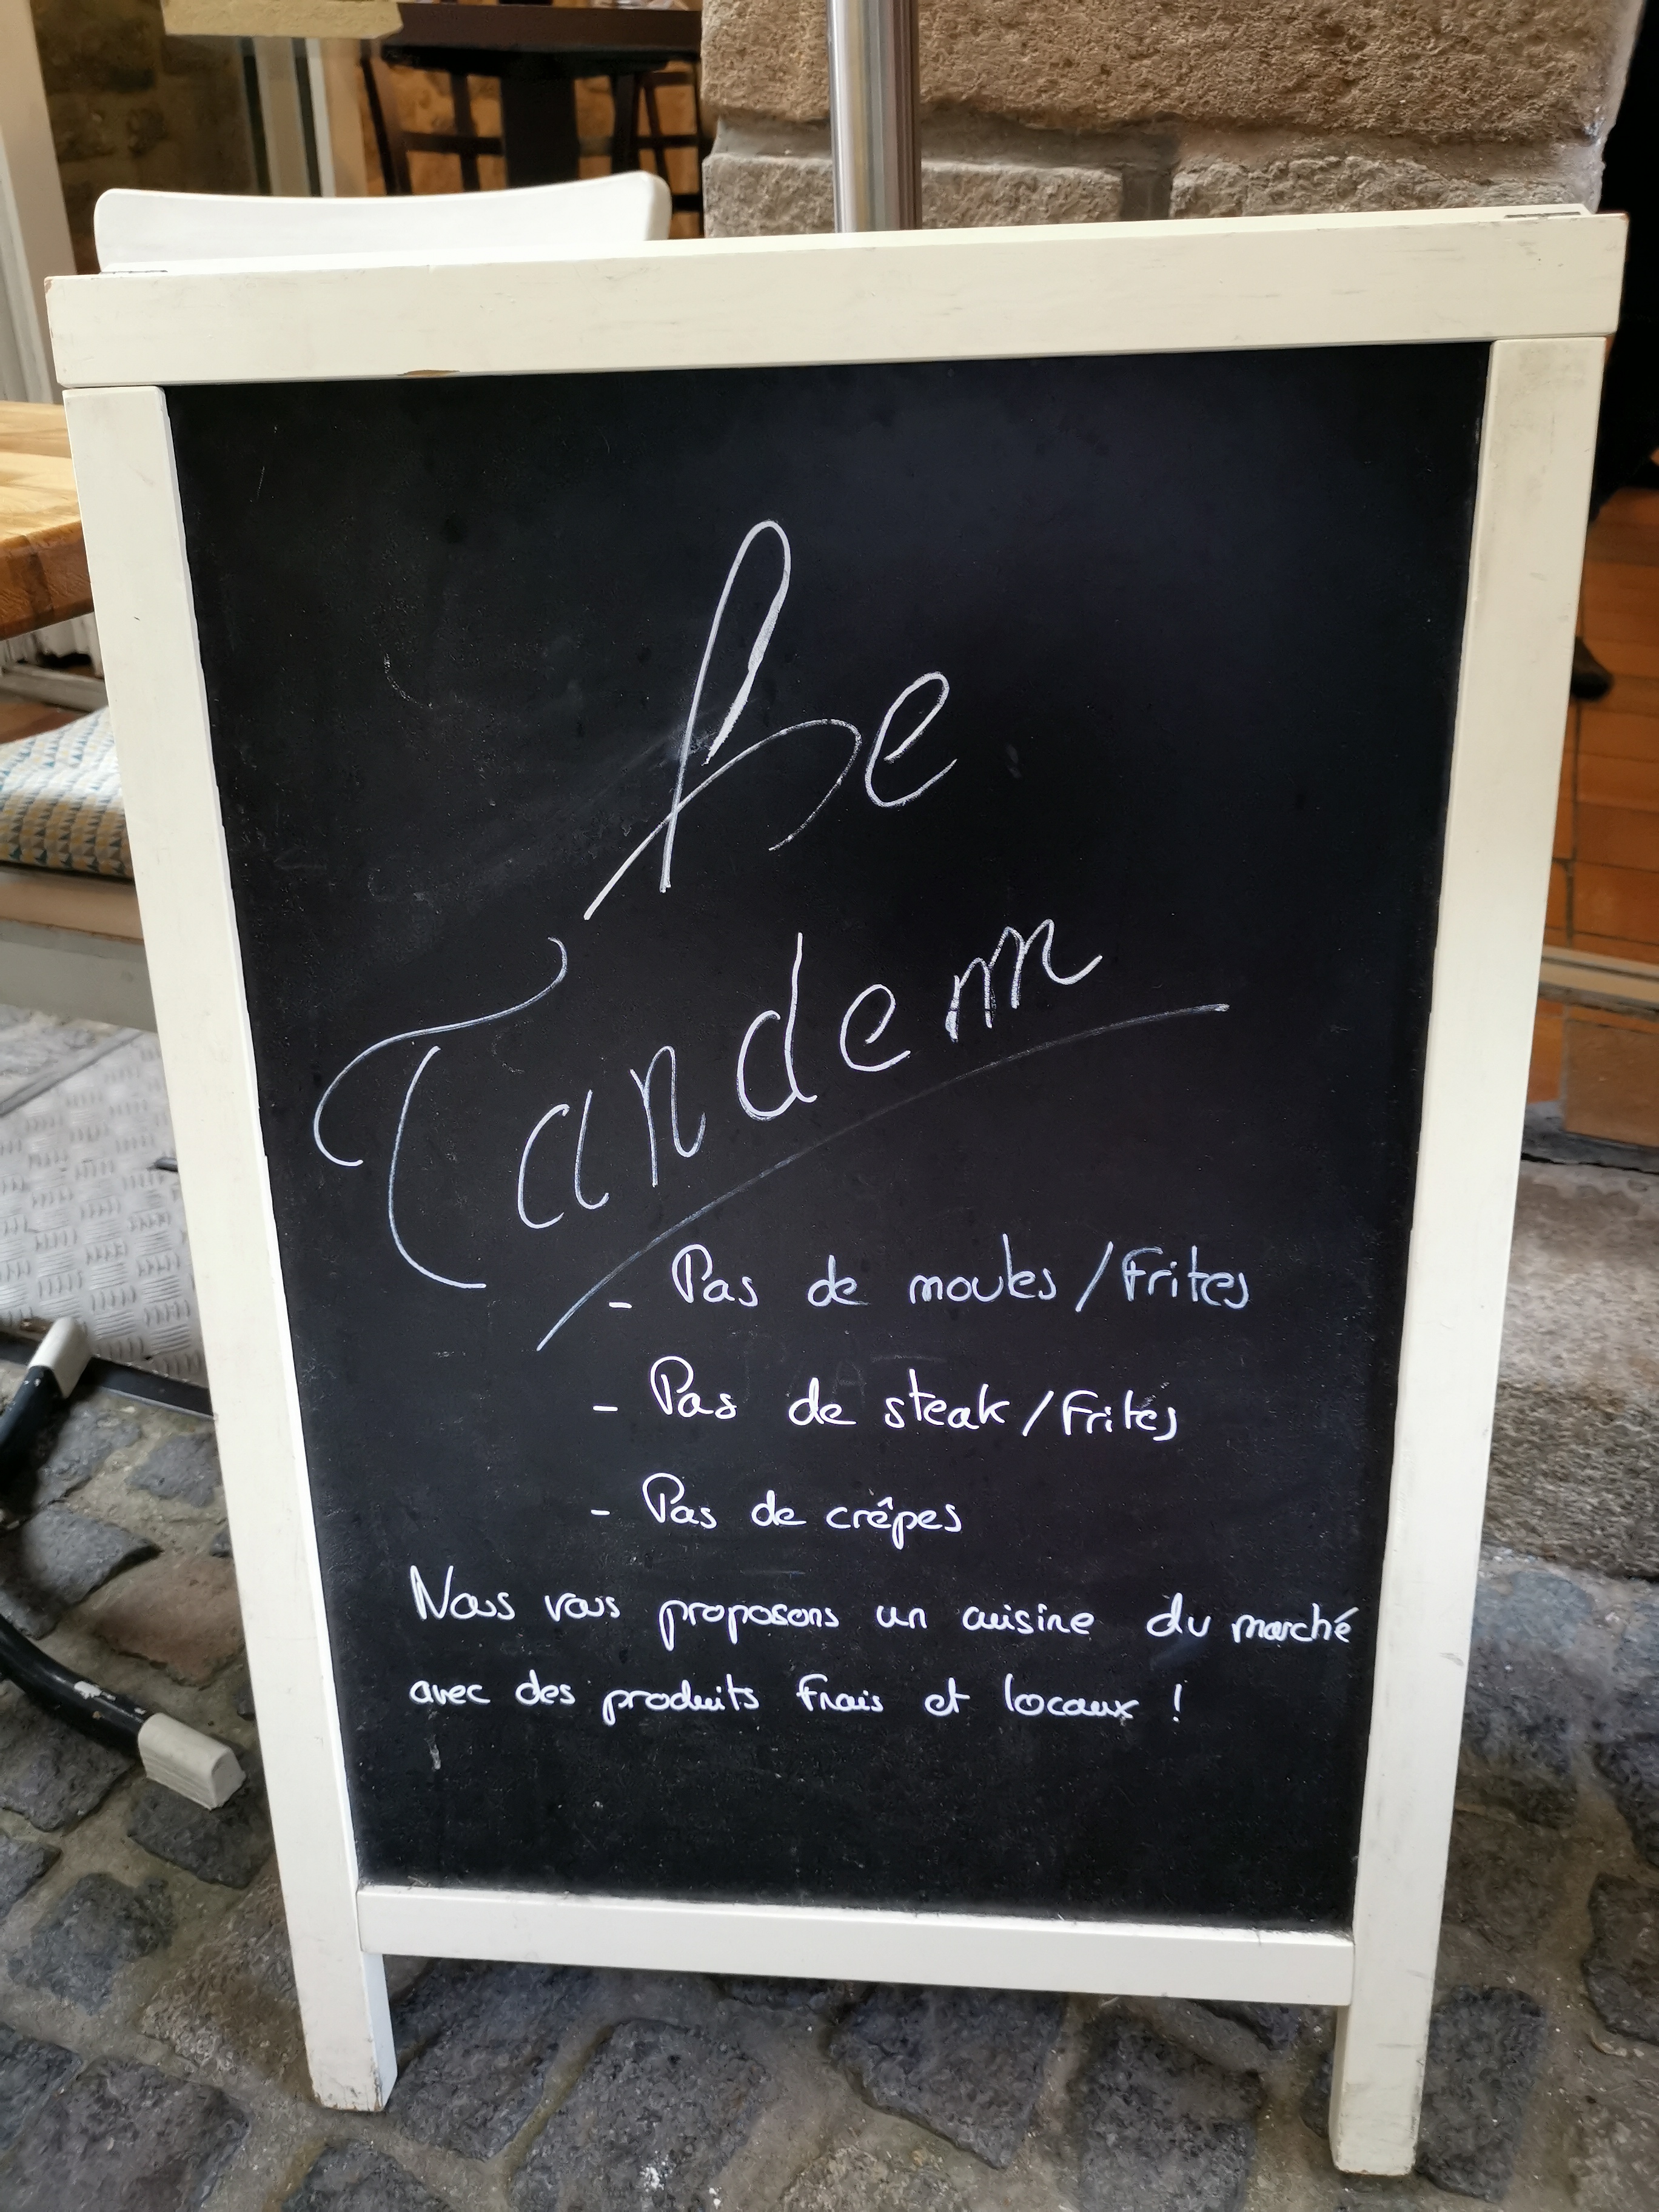 Le
Tandem
- Pas de moules / Frites
- Pas de steak / Frites
- Pas de crêpes
Nous vous proposons un cuisine du marché
avec des produits Frais et locaux !